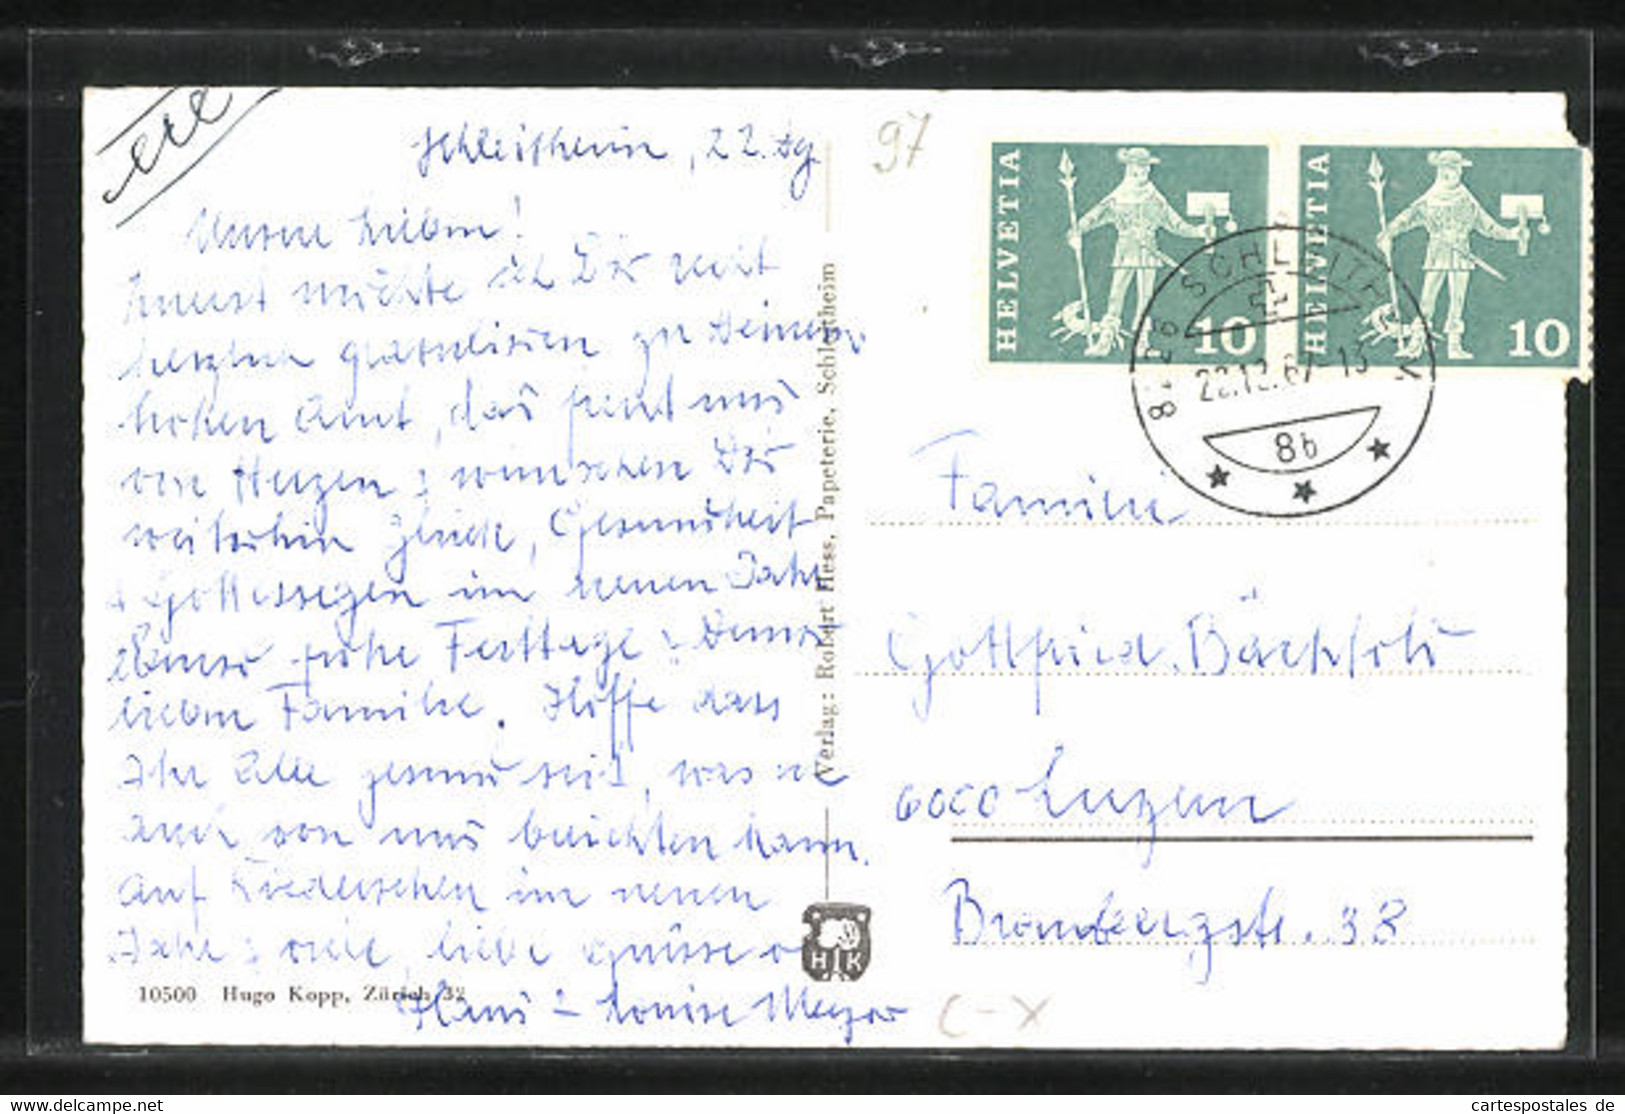 Schleitheim, 22. Dez.
97
Unsere Lieben!
Zuerst möchte ich Dir recht
herzlich gratulieren zu Deinem
hohen Amt, das freut uns
von Herzen & wünschen Dir
weiterhin Glück, Gesundheit
& Gottessegen im neuen Jahr
ebenso frohe Festtage & Deiner
lieben Familie. Hoffe dass
Ihr Alle gesund seid, was ich
auch von uns berichten kann.
Auf Wiedersehen im neuen
Jahr & viele, liebe Grüsse v.
Hans & Louise Meyer
HELVETIA 10
HELVETIA 10
8226 SCHLEITHEIM
22.12.67-13
8b
Familie
Gottfried Bächtold
6000 Luzern
Brambergstr. 38
Verlag: Robert Hess, Papeterie, Schleitheim
H K
10500 Hugo Kopp, Zürich 32
C-X
www.cartespostales.de